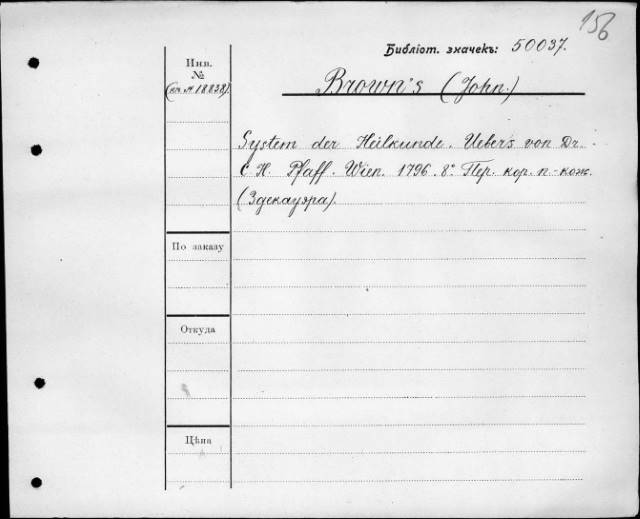 156
Библіот. значекъ: 50037.
Инв.
№
(кат. № 18838).
Brown's (John.)
System der Heilkunde. Uebers. von Dr.
C. H. Pfaff. Wien. 1796. 8°. Пер. кор. п.-кож.
(Здекауэра).
По заказу
Откуда
Цѣна